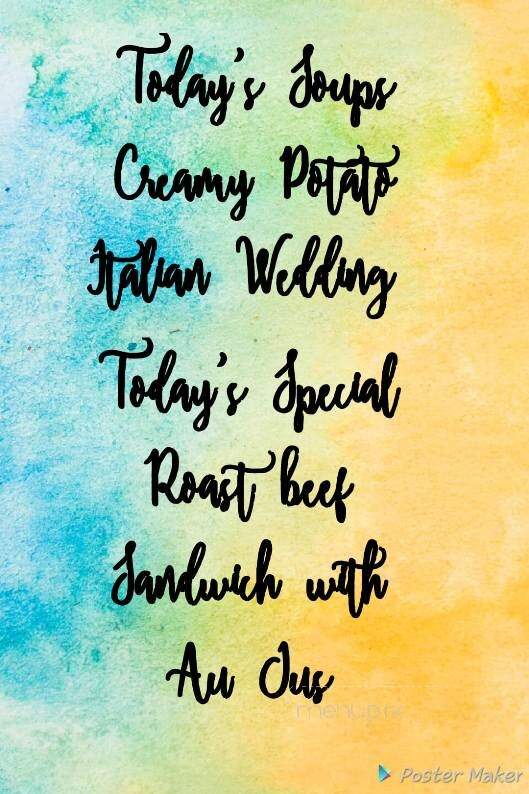 Today's Soups
Creamy Potato
Italian Wedding
Today's Special
Roast beef
Sandwich with
Au Jus
Poster Maker